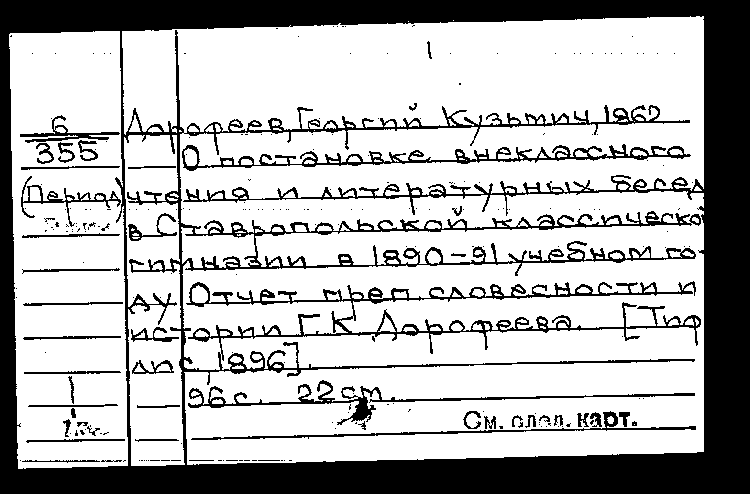 1
6
355
(Период)
Дорофеев, Георгий Кузьмич, 1862
О постановке внеклассного
чтения и литературных бесед
в Ставропольской классической
гимназии в 1890-91 учебном го-
ду. Отчет преп. словесности и
истории Г.К. Дорофеева. [Тиф
лис, 1896].
96 с. 22 см.
См. след. карт.